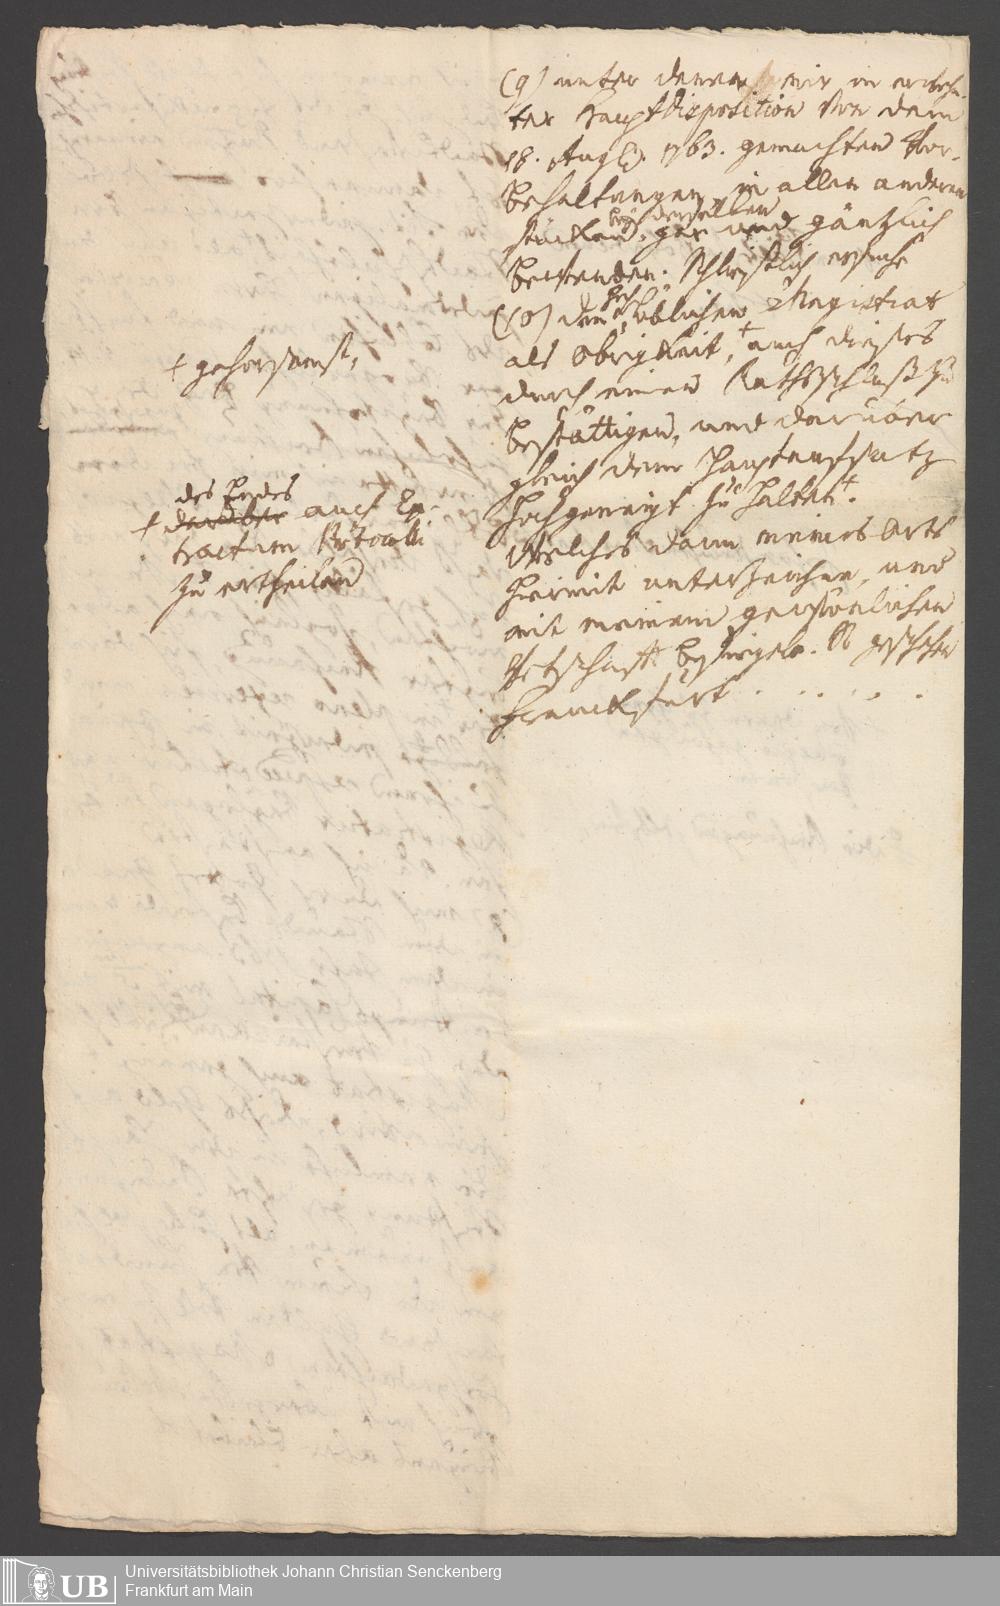 (9) unter denen mir in erwehn-
ter Hauptdisposition von dem
18. Aug. 1763. gemachten Vor-
behaltungen, in allen anderen
stücken bey denselben gar und gäntzlich
Schließlich ersuche
(10) den hochlöblichen Magistrat
als Obrigkeit, + auch dieses
durch einen Rathsschluß zu
bestättigen, und darüber
gleich dem Hauptaufsatz
hochgeneigt zu halten +.
Welches dann meines Orts
hiermit unterzeichne, und
mit meinem gewöhnlichen
Petschafft besiegele. So geschehen
Franckfurt . . . . . .
+ gehorsamst,
des Endes
+ darüber auch Ex-
tractum Protocolli
zu ertheilen
UB
Universitätsbibliothek Johann Christian Senckenberg
Frankfurt am Main